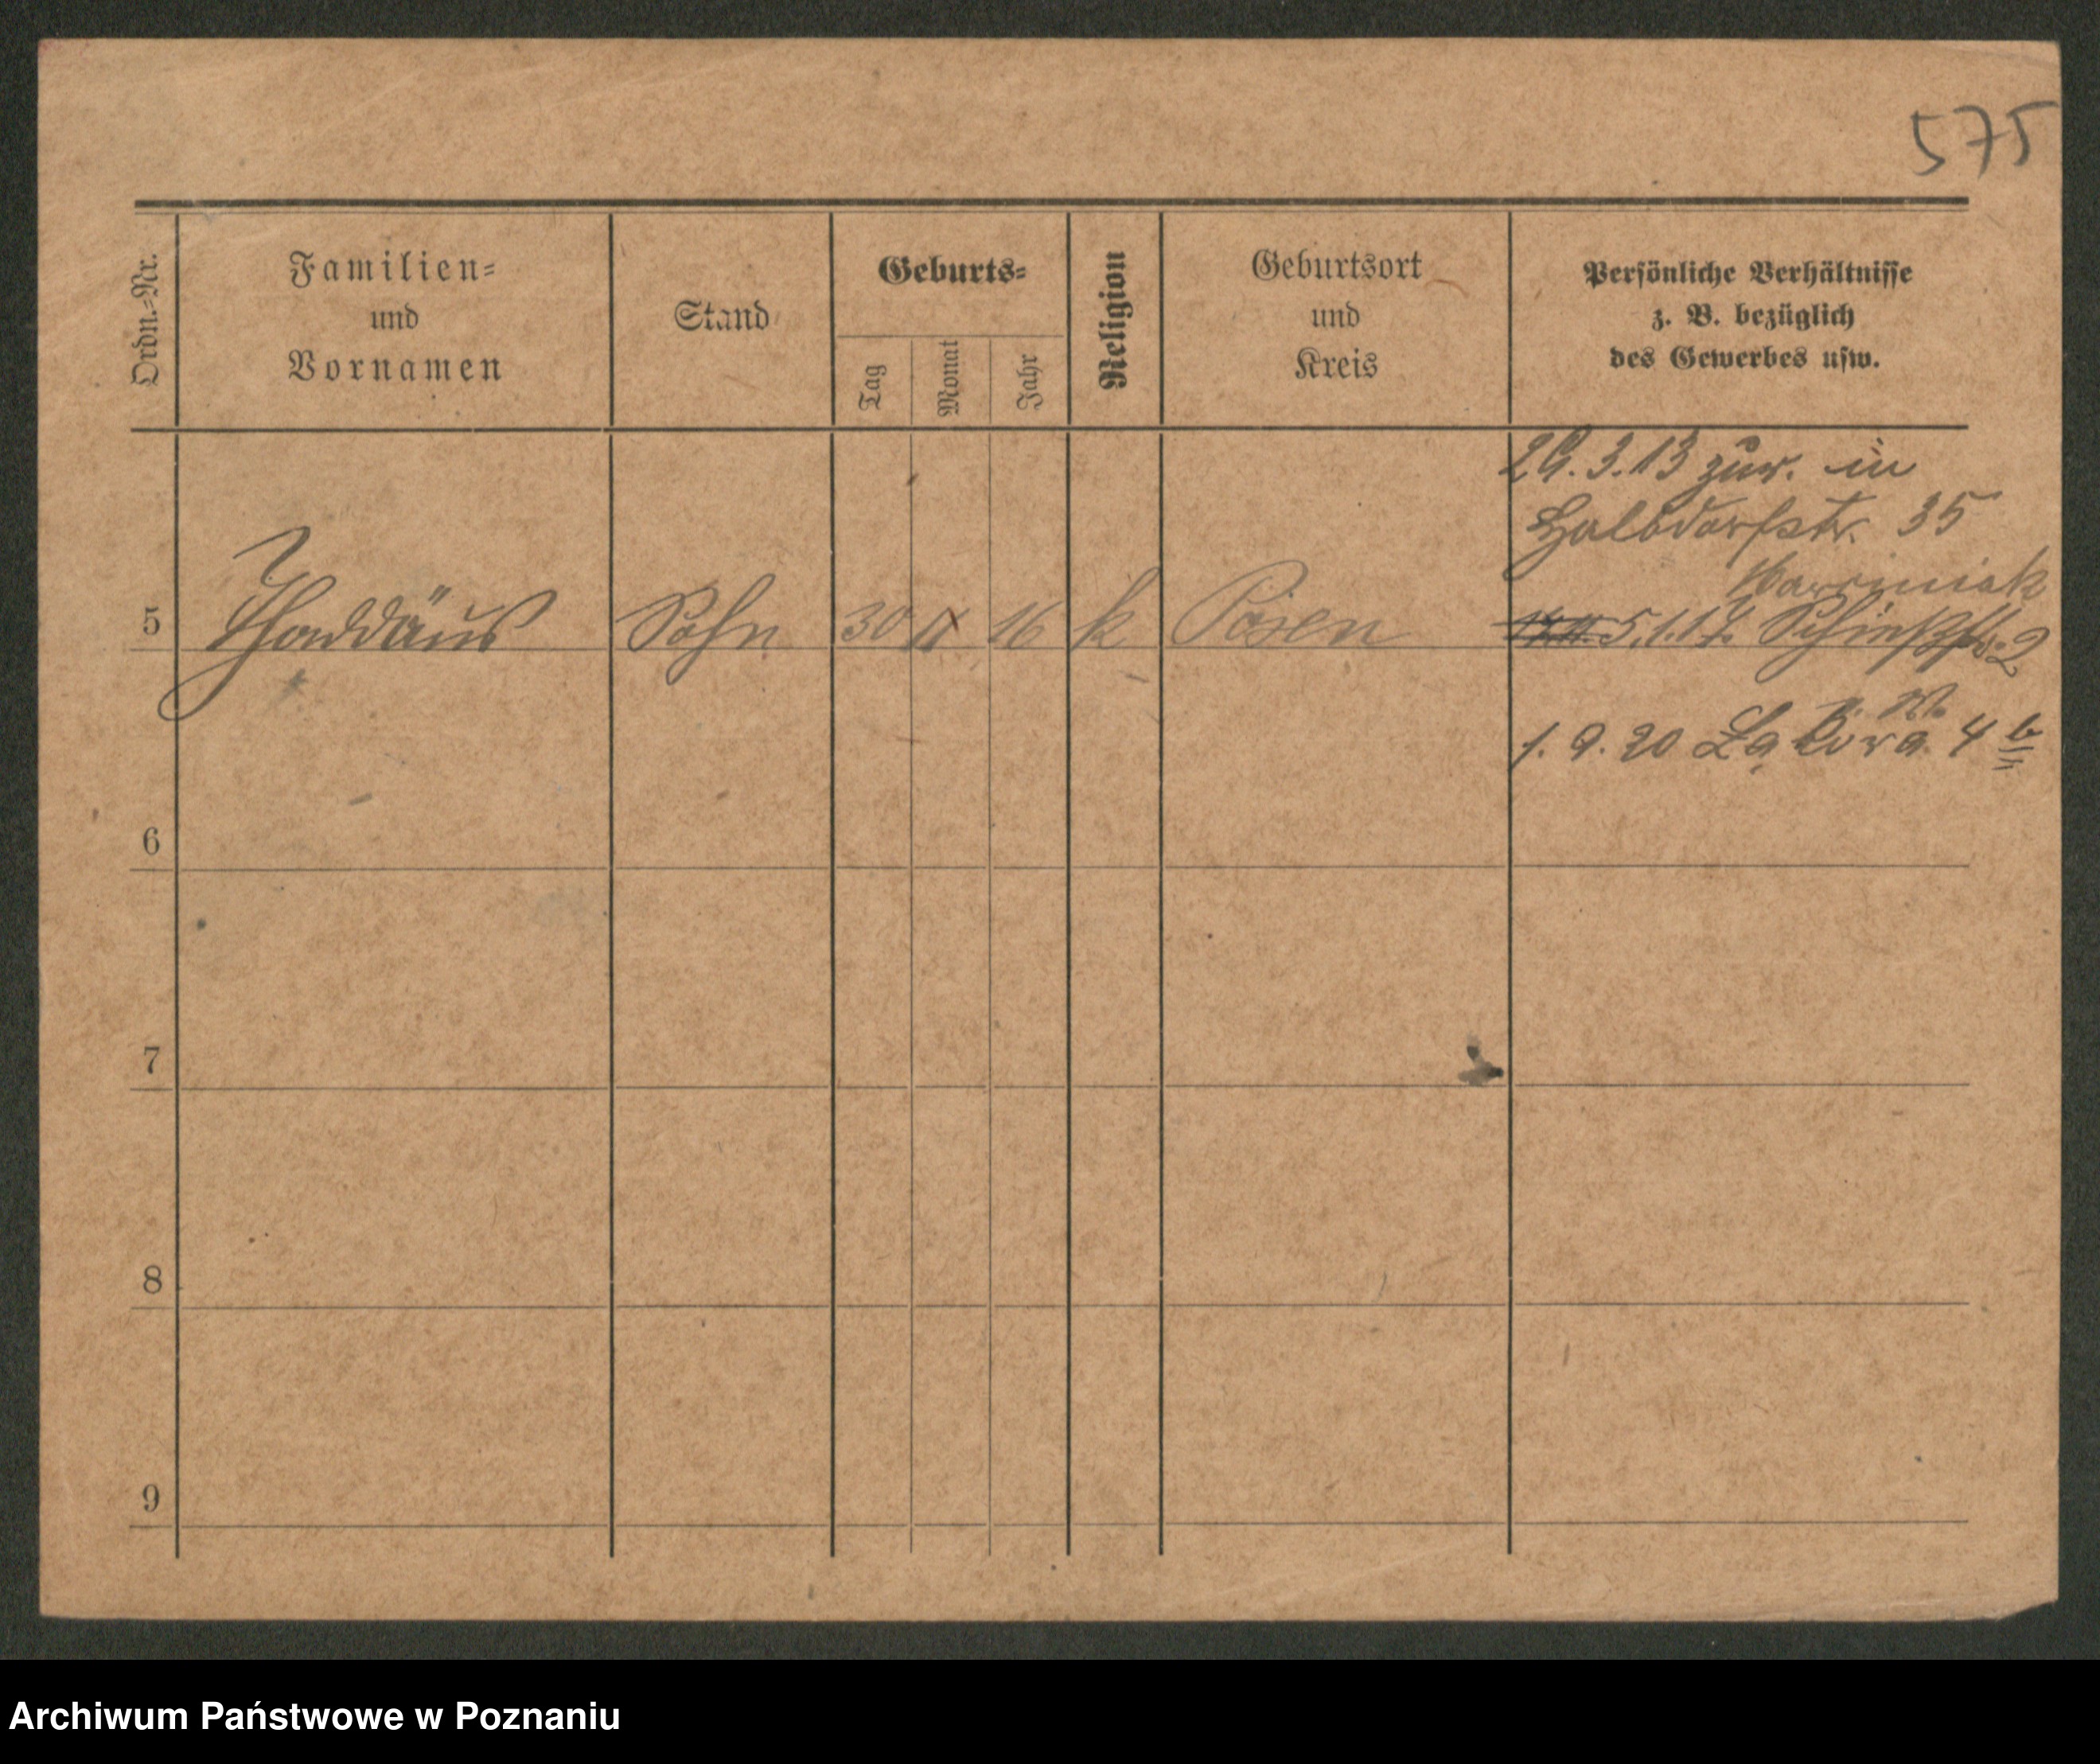 575
Ordn.-Nr.
Familien-
und
Vornamen
Stand
Geburts-
Tag
Monat
Jahr
Religion
Geburtsort
und
Kreis
Persönliche Verhältnisse
z. B. bezüglich
des Gewerbes usw.
29.3.13 zur. in
Halbdorfstr. 35
5 Thaddäus Sohn 30 16 k Posen 5.1.17.
1.9.20 Łąkowa 4 b
6
7
8
9
Archiwum Państwowe w Poznaniu